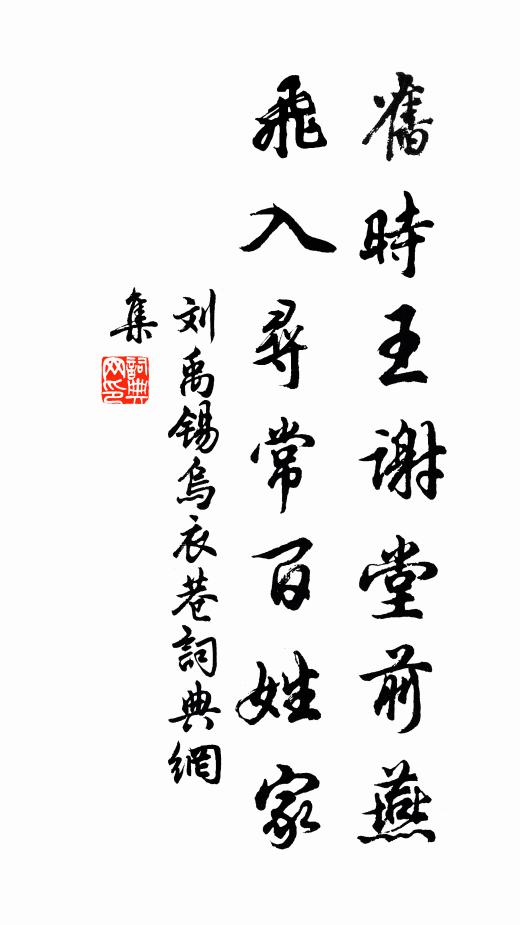 舊時王謝堂前燕
飛入尋常百姓家
刘禹锡烏衣巷詞典網
集
詞典网印